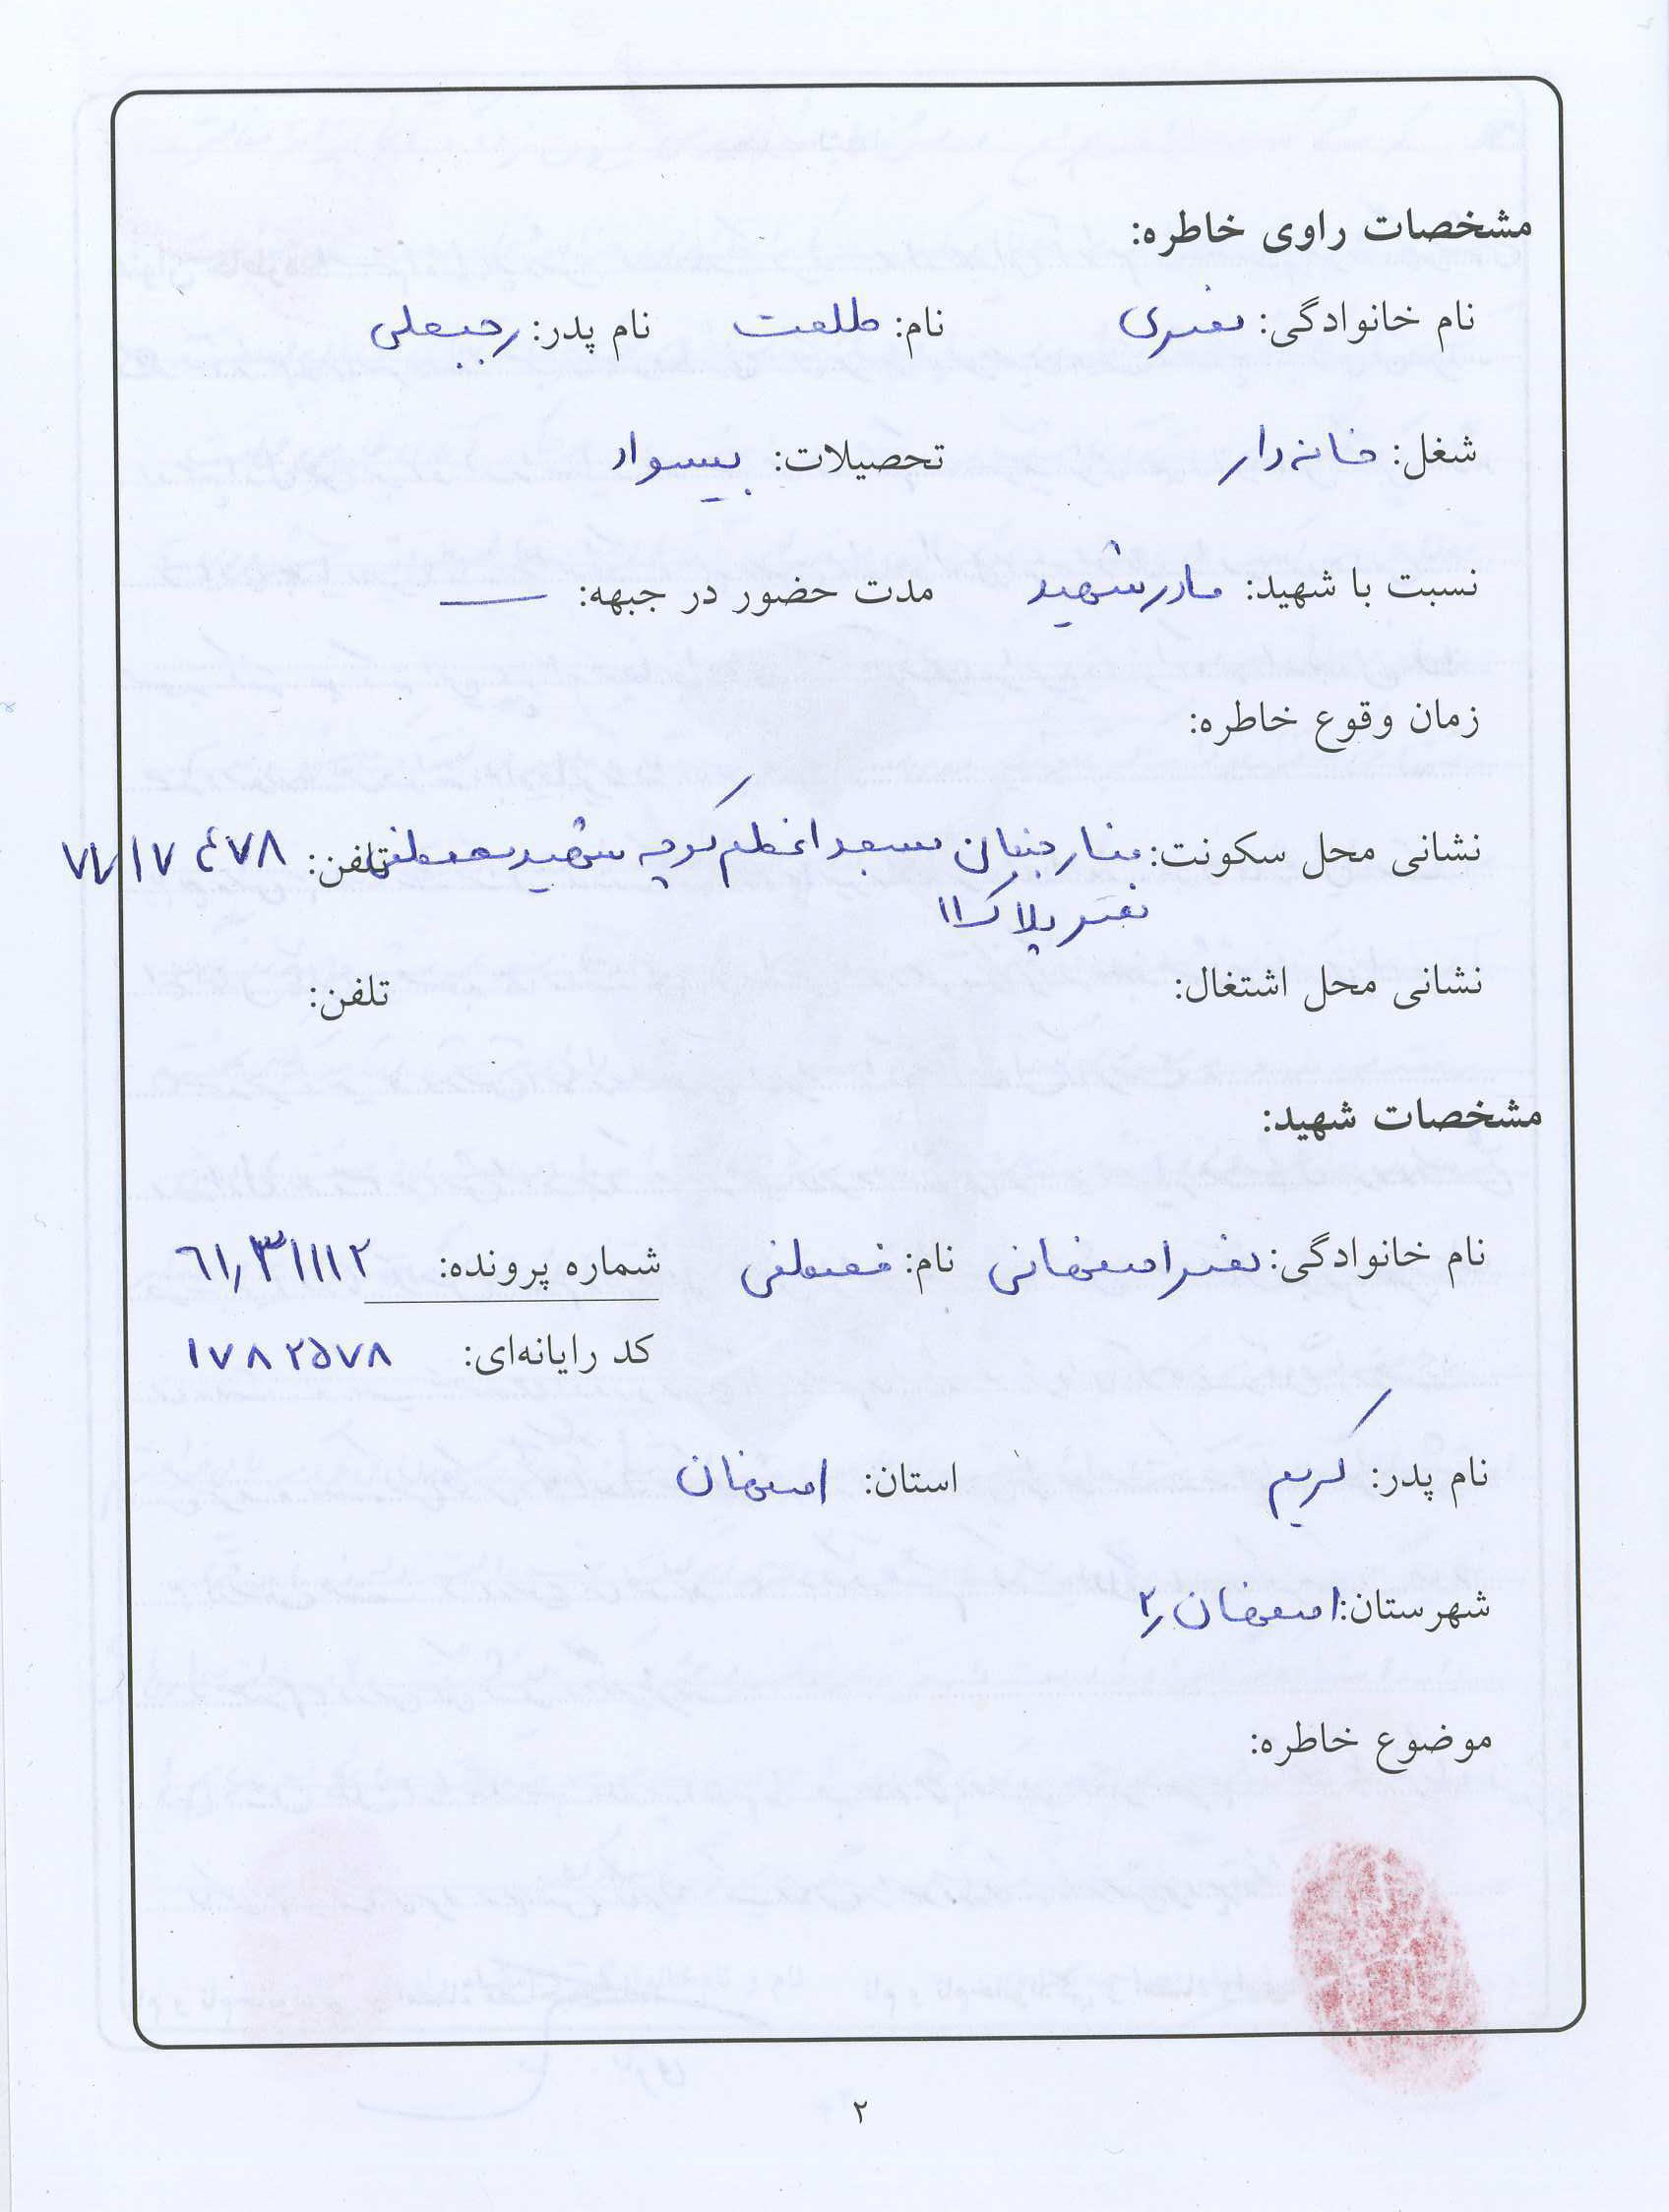 مشخصات راوی خاطره:
نام خانوادگی: نصری نام: طلعت نام پدر: رجبعلی
شغل: خانه‌دار تحصیلات: بیسواد
نسبت با شهید: مادر شهید مدت حضور در جبهه: ــ
زمان وقوع خاطره:
نشانی محل سکونت: منار جنبان مسجد اعظم کوچه شهید مصطفی تلفن:
نصر پلاک ۱۱
نشانی محل اشتغال: تلفن:
مشخصات شهید:
نام خانوادگی: نصر اصفهانی نام: مصطفی شماره پرونده: ۶۱٫۳۱۱۱۲
کد رایانه‌ای: ۱۷۸۲۵۷۸
نام پدر: کریم استان: اصفهان
شهرستان: اصفهان ۲
موضوع خاطره:
۲